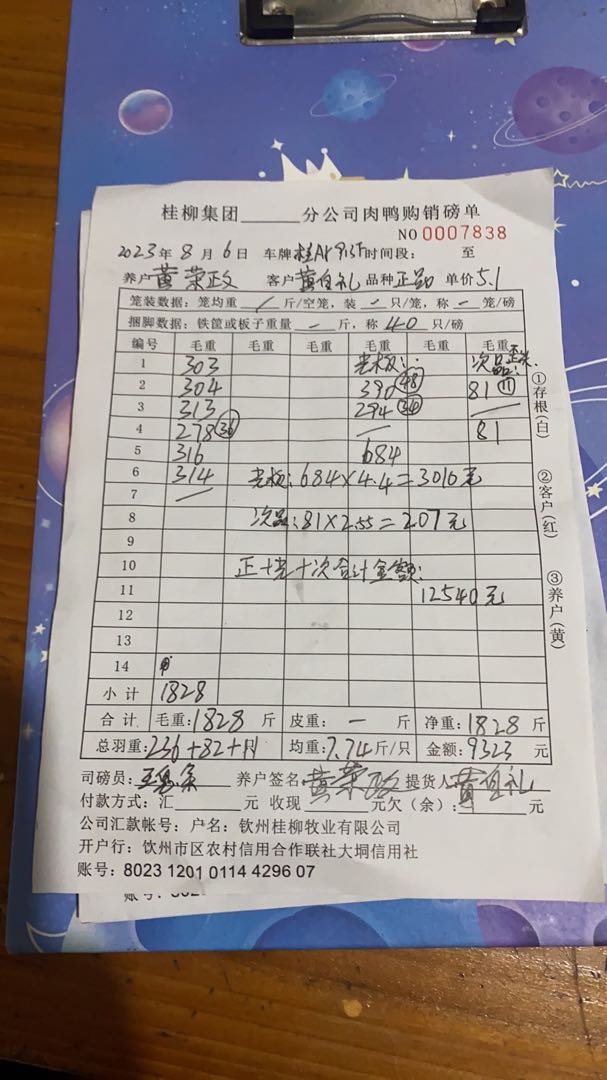 桂柳集团______分公司肉鸭购销磅单
NO 0007838
2023年8月6日 车牌 时间段: 至
养户 黄荣政 客户 黄伯礼 品种 正品 单价 5.1
笼装数据: 笼均重 / 斤/空笼, 装 - 只/笼, 称 - 笼/磅
捆脚数据: 铁筐或板子重量 - 斤, 称 40 只/磅
编号 毛重 毛重 毛重 毛重 毛重 毛重
1 303 次品
2 304 390 48 81 11
3 313 294 34
4 278 36 81
5 316 684
6 314 684×4.4=3010元
7
8 次品:81×2.55=207元
9
10 正+光+次合计金额:
11 12540元
12
13
14
小计 1828
合计 毛重:1828斤 皮重: — 斤 净重:1828斤
总羽重:236+82+11 均重:7.74斤/只 金额:9323元
司磅员: 养户签名 黄荣政 提货人 黄伯礼
付款方式:汇______元 收现______元欠(余):______元
公司汇款帐号: 户名: 钦州桂柳牧业有限公司
开户行: 钦州市区农村信用合作联社大垌信用社
账号: 8023 1201 0114 4296 07
①存根(白)
②客户(红)
③养户(黄)